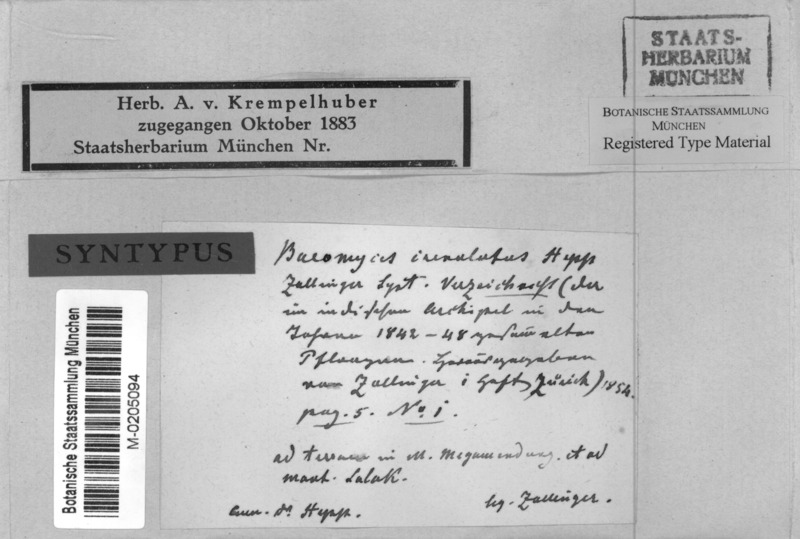 STAATS-
HERBARIUM
MÜNCHEN
Herb. A. v. Krempelhuber
zugegangen Oktober 1883
Staatsherbarium München Nr.
BOTANISCHE STAATSSAMMLUNG
MÜNCHEN
Registered Type Material
SYNTYPUS
Baeomyces crenulatus Hepp
Zollinger Syst. Verzeichniß (der
im indischen Archipel in den
Jahren 1842-48 gesammelten
Pflanzen. Herausgegeben
von Zollinger i Heft, Zürich) 1854.
pag. 5. No 1.
ad terram in M. Megamendung. et ad
mont. Salak.
com. Dr Hepp.
leg. Zollinger.
Botanische Staatssammlung München
M-0205094